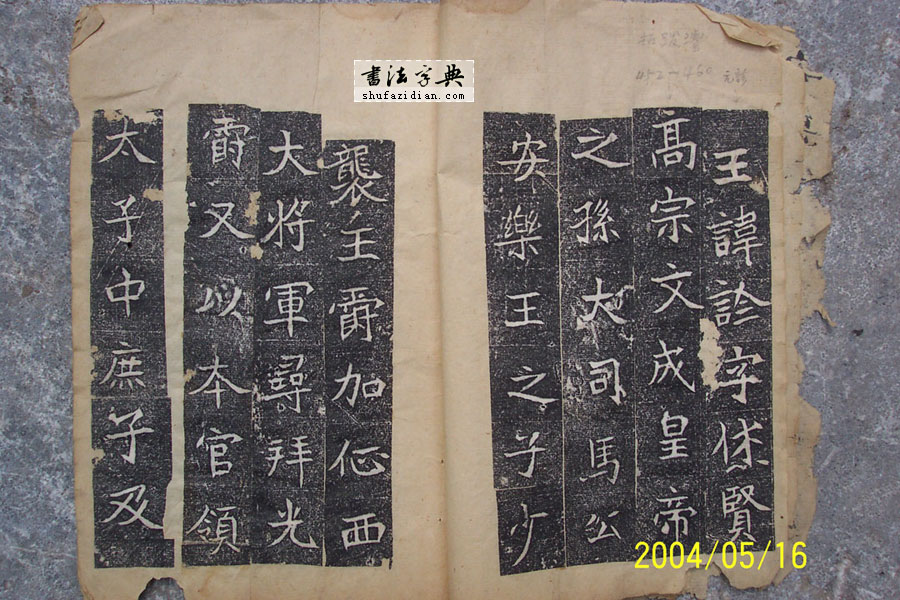 书法字典
shufazidian.com
拓跋濬
452-460
王諱診字休賢
髙宗文成皇帝
之孫大司馬公
安樂王之子少
襲王爵加征西
大将軍尋拜光
爵又以本官領
太子中庶子及
2004/05/16